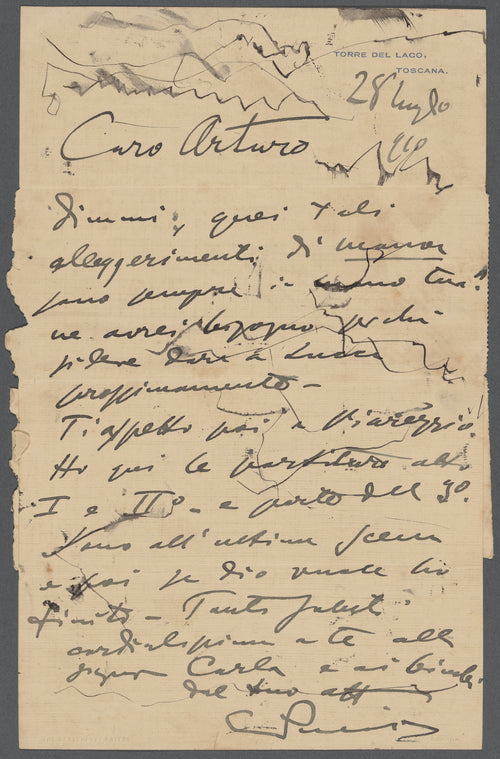 TORRE DEL LAGO,
TOSCANA.
28 luglio
910
Caro Arturo
dimmi, quei tali
alleggerimenti di manon
sono sempre in mano tua?
ne avrei bisogno perché
si deve dare a Lucca
prossimamente –
Ti aspetto poi a Viareggio!
Ho qui le partiture atto
I e II° – e parte del 3°.
Sono all'ultima scena
e poi se Dio vuole ho
finito – Tanti saluti
cordialissimi a te alla
signora Carla e ai bimbi
dal tuo aff
G Puccini